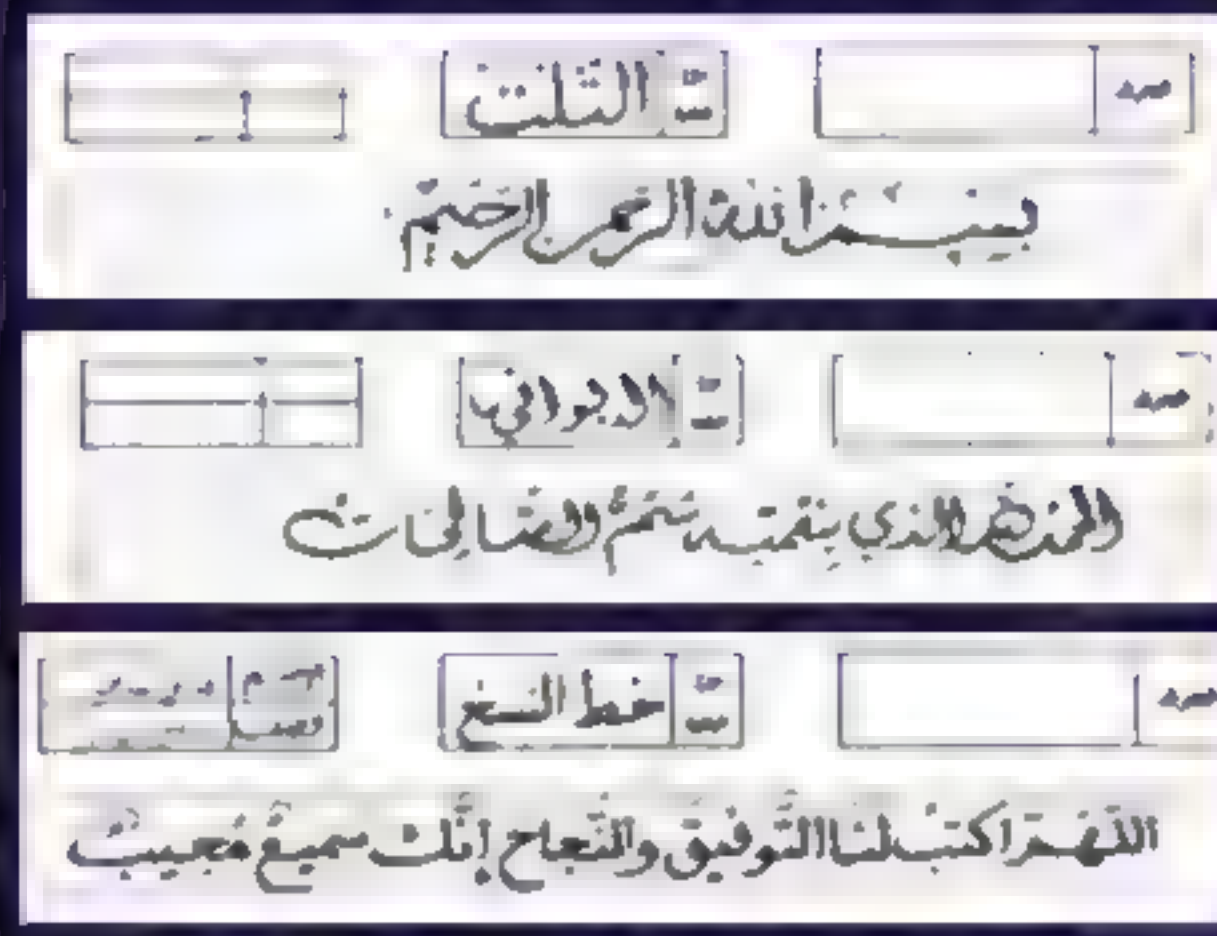 الثلث
بسم الله الرحمن الرحيم
الديواني
الحمد لله الذي بنعمته تتم الصالحات
خط النسخ
اللَّهُمَّ اكتبْ لنا التَّوفيق والنَّجاح إنَّك سميعٌ مُجيبٌ